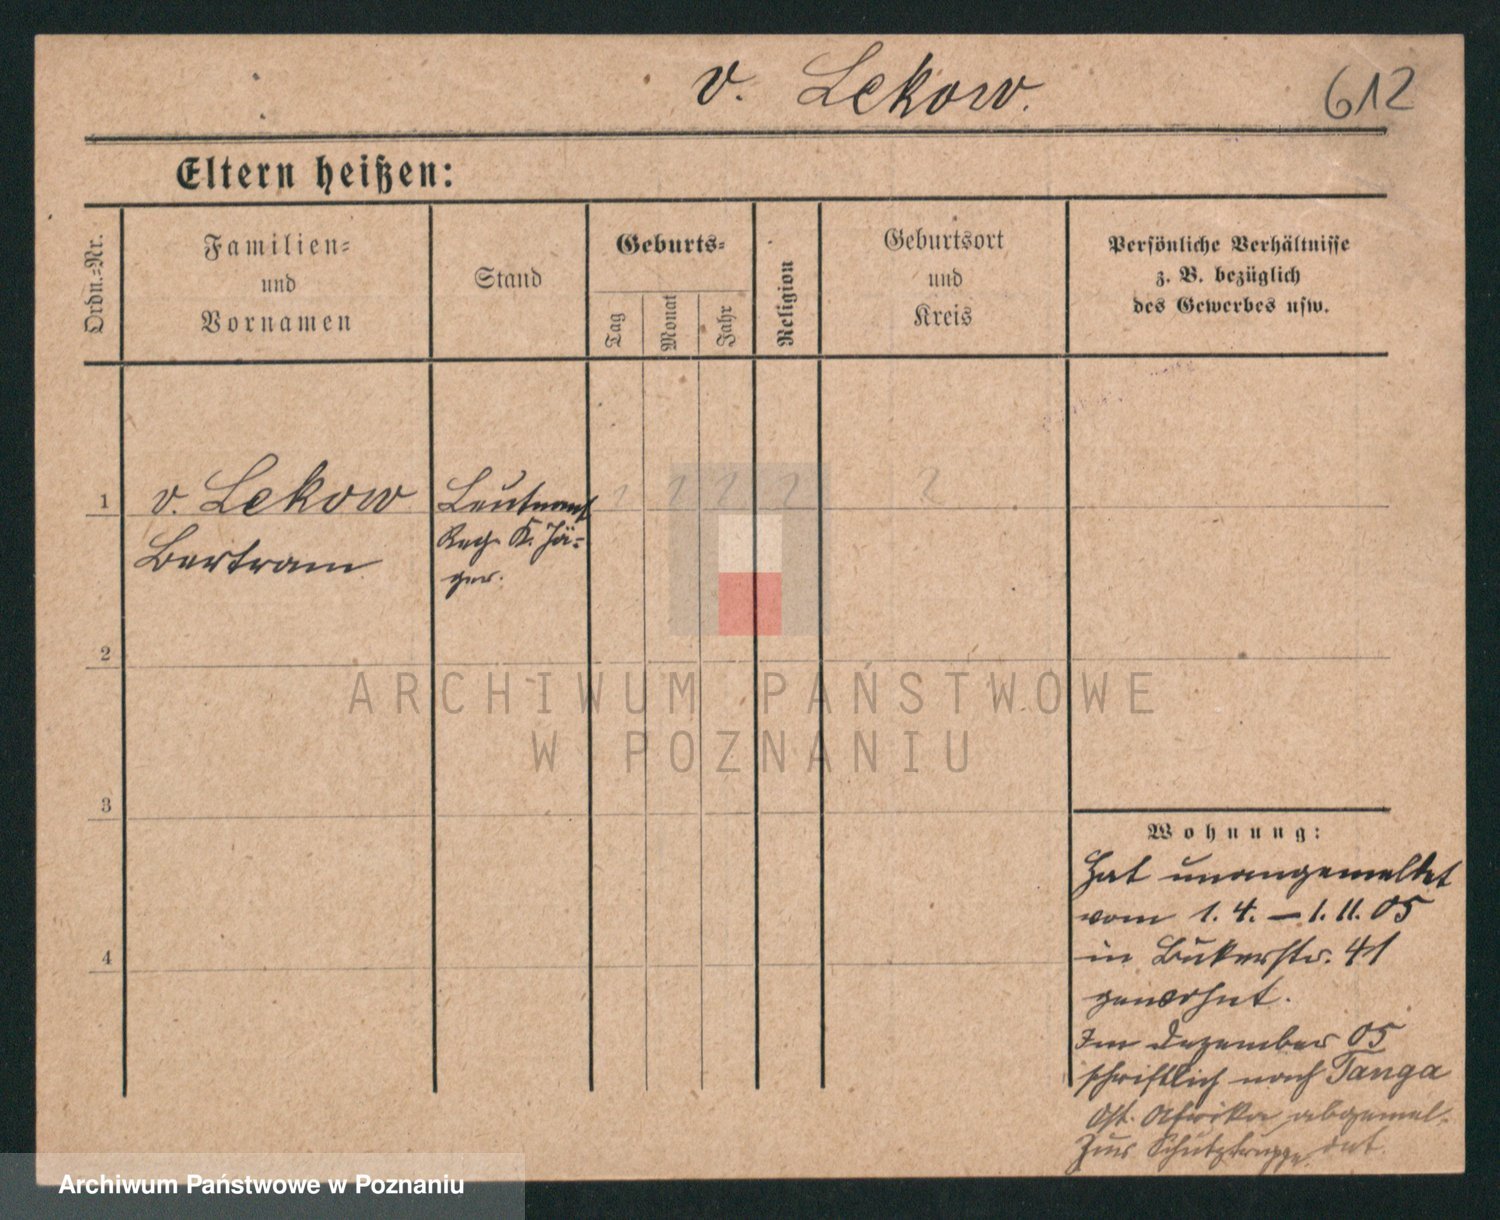 v. Lekow.
612
Eltern heißen:
Ordn.-Nr.
Familien-
und
Vornamen
Stand
Geburts-
Tag
Monat
Jahr
Religion
Geburtsort
und
Kreis
Persönliche Verhältnisse
z. B. bezüglich
des Gewerbes usw.
1
v. Lekow
Bertram
Leutnant
Reg. K. Jä-
ger.
? ? ? ? ?
2
3
4
ARCHIWUM PAŃSTWOWE
W POZNANIU
Wohnung:
Hat unangemeldet
vom 1. 4. – 1. 11. 05
in Bukerstr. 41
gewohnt.
Im Dezember 05
schriftlich nach Tanga
Ost. Afrika abgemel-
det.
Zur Schutztruppe
Archiwum Państwowe w Poznaniu